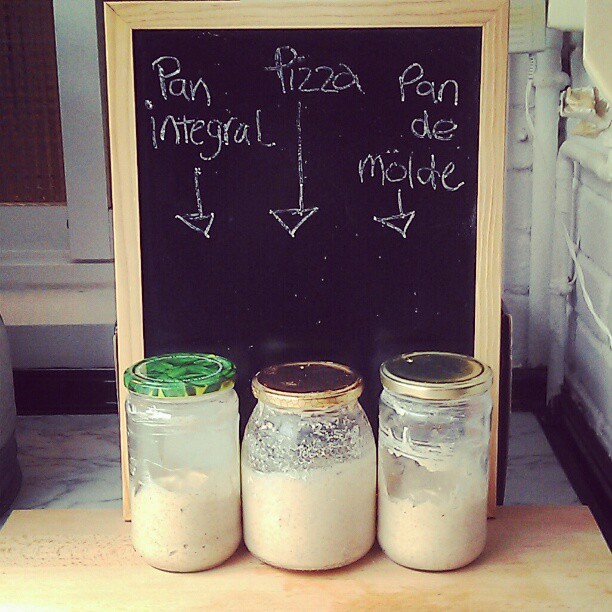 Pan
integral
Pizza
Pan
de
mölde